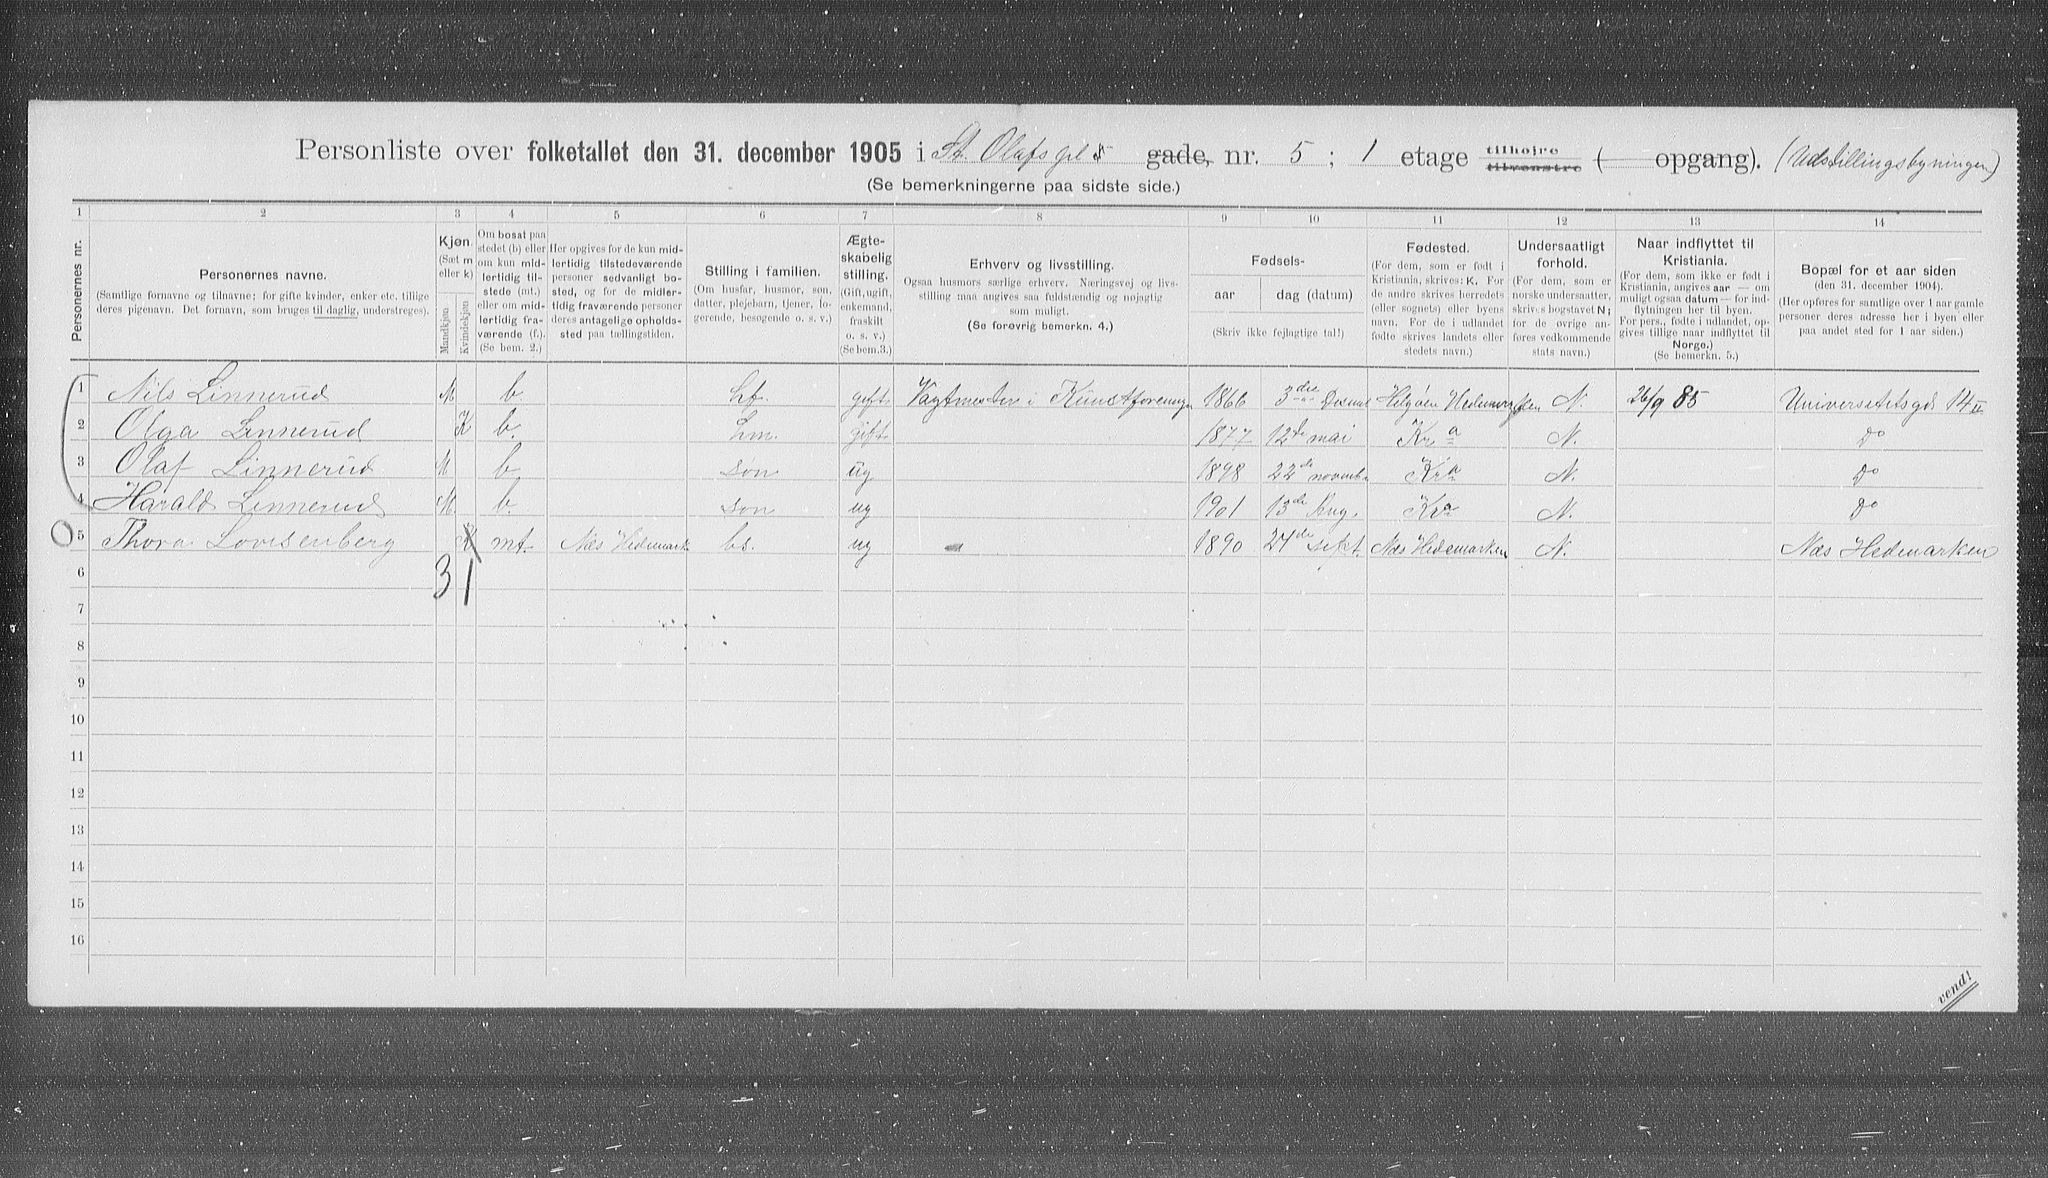 Personliste over folketallet den 31. december 1905 i St. Olafs pl 5 gade, nr. 5 ; 1 etage tilhøjre tilvenstre ( opgang). (Udstillingsbyningen)
(Se bemerkningerne paa sidste side.)
1 2 3 4 5 6 7 8 9 10 11 12 13 14
Personernes nr.
Personernes navne.
(Samtlige fornavne og tilnavne; for gifte kvinder, enker etc. tillige
deres pigenavn. Det fornavn, som bruges til daglig, understreges).
Kjøn.
(Sæt m
eller k)
Mandkjøn
Kvindekjøn
Om bosat paa
stedet (b) eller
om kun mid-
lertidig til-
stede (mt.)
eller om mid-
lertidig fra-
værende (f.).
(Se bem. 2.)
Her opgives for de kun mid-
lertidig tilstedeværende
personer sedvanligt bo-
sted, og for de midler-
tidig fraværende personer
deres antagelige opholds-
sted paa tællingstiden.
Stilling i familien.
(Om husfar, husmor, søn,
datter, plejebarn, tjener, lo-
gerende, besøgende o. s. v.)
Ægte-
skabelig
stilling.
(Gift, ugift,
enkemand,
fraskilt
o. s. v.)
(Se bem. 3.)
Erhverv og livsstilling.
Ogsaa husmors særlige erhverv. Næringsvej og livs-
stilling maa angives saa fuldstændig og nøjagtig
som muligt.
(Se forøvrig bemerkn. 4.)
Fødsels-
aar dag (datum)
(Skriv ikke fejlagtige tal!)
Fødested.
(For dem, som er født i
Kristiania, skrives: K. For
de andre skrives herredets
(eller sognets) eller byens
navn. For de i udlandet
fødte skrives landets eller
stedets navn.)
Undersaatligt
forhold.
(For dem, som er
norske undersaatter,
skrives bogstavet N;
for de øvrige an-
føres vedkommende
stats navn.)
Naar indflyttet til
Kristiania.
(For dem, som ikke er født i
Kristiania, angives aar — om
muligt ogsaa datum — for ind-
flytningen her til byen.
For pers., fødte i udlandet, op-
gives tillige naar indflyttet til
Norge.)
(Se bemerkn. 5.)
Bopæl for et aar siden
(den 31. december 1904).
(Her opføres for samtlige over 1 aar gamle
personer deres adresse her i byen eller
paa andet sted for 1 aar siden.)
1 Nils Linnerud M b. hf. gift Vagtmester i Kunstforeningen 1866 3die Desmb Helgøen Hedemarken N. 26/9 85 Universitetsgd 14 II
2 Olga Linnerud K b. hm. gift 1877 12de mai Kra N. Do
3 Olaf Linnerud M b søn ug 1898 22de novemb. Kra N. Do
4 Harald Linnerud M. b. søn ug 1901 13de Aug. Kra N. Do
5 Thora Lovisenberg K mt. Næs Hedemark bs. ug 1890 27de sept. Næs Hedemarken N. Næs Hedemarken
6 3 1
7
8
9
10
11
12
13
14
15
16
vend!